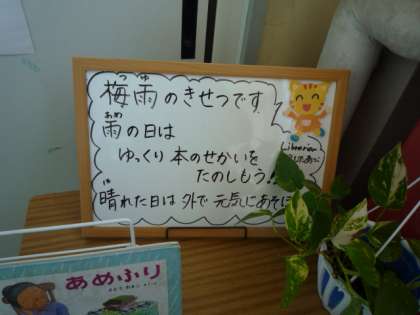 つゆ
梅雨のきせつです
あめ
雨の日は
ゆっくり 本のせかいを
たのしもう!!
は
晴れた日は 外で 元気にあそぼ
Librarian
あめふり